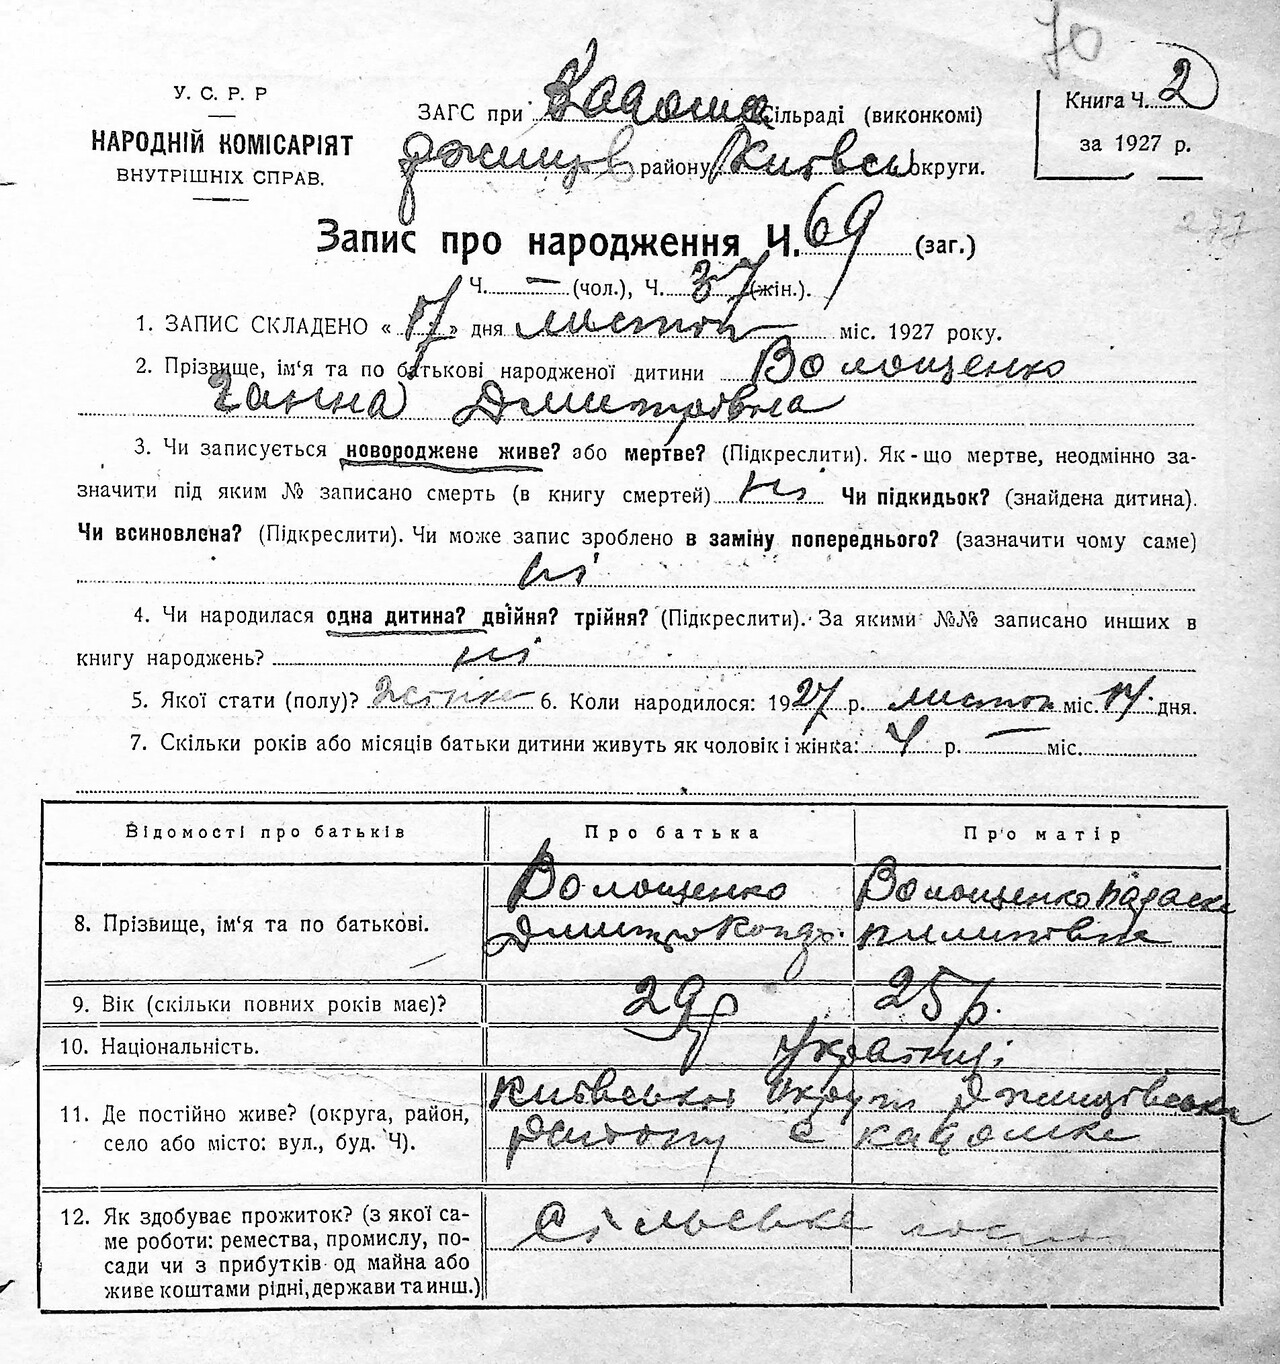 70
У. С. Р. Р
НАРОДНІЙ КОМІСАРІЯТ
ВНУТРІШНІХ СПРАВ.
ЗАГС при Сільраді (виконкомі)
Ржищів району Київсь округи.
Книга Ч. 2
за 1927 р.
277
Запис про народження Ч. 69 (заг.)
Ч. — (чол.), Ч. 37 (жін.).
1. ЗАПИС СКЛАДЕНО « 17 » дня листоп міс. 1927 року.
2. Прізвище, ім'я та по батькові народженої дитини Волощенко
Ганна Дмитрівна
3. Чи записується новороджене живе? або мертве? (Підкреслити). Як-що мертве, неодмінно за-
значити під яким № записано смерть (в книгу смертей) ні Чи підкидьок? (знайдена дитина).
Чи всиновлена? (Підкреслити). Чи може запис зроблено в заміну попереднього? (зазначити чому саме)
ні
4. Чи народилася одна дитина? двійня? трійня? (Підкреслити). За якими №№ записано инших в
книгу народжень? ні
5. Якої стати (полу)? 6. Коли народилося: 1927 р. листоп міс. 17 дня.
7. Скільки років або місяців батьки дитини живуть як чоловік і жінка: 4 р. — міс.
Відомості про батьків
Про батька
Про матір
8. Прізвище, ім'я та по батькові.
Волощенко
Дмитро Кондр.
Волощенко Параска
Пилипівна
9. Вік (скільки повних років має)?
29 р
25 р.
10. Національність.
Українці
11. Де постійно живе? (округа, район,
село або місто: вул., буд. Ч).
Київської округи Ржищівська
району с
12. Як здобуває прожиток? (з якої са-
ме роботи: ремества, промислу, по-
сади чи з прибутків од майна або
живе коштами рідні, держави та инш.)
Сільське госпо